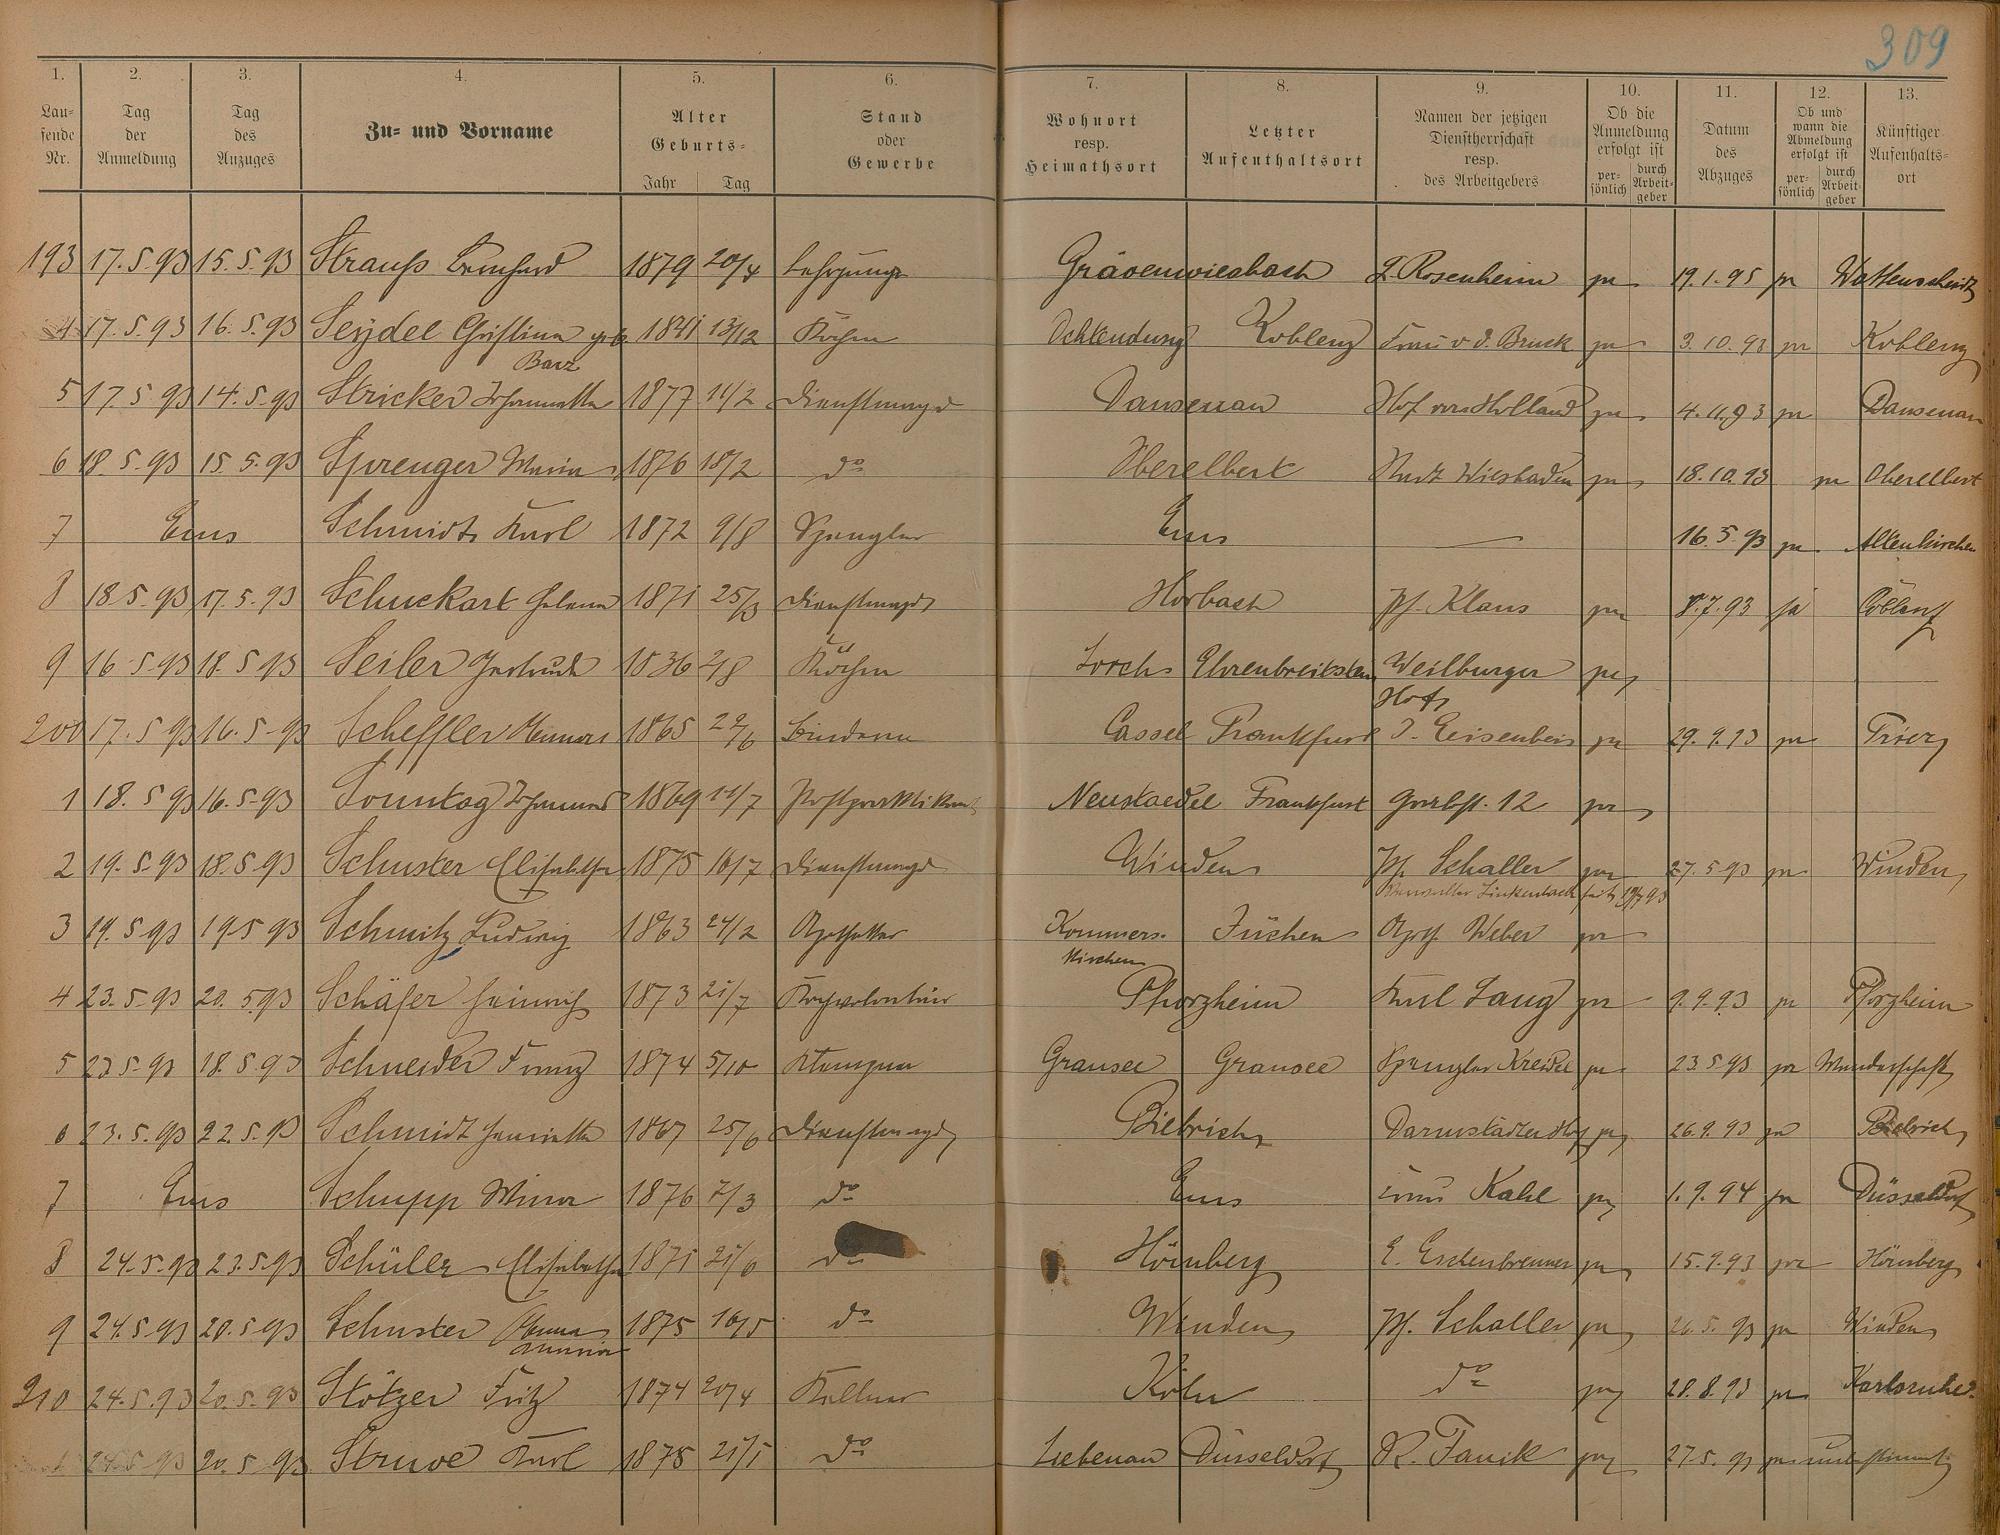 309
1. 2. 3. 4. 5. 6. 7. 8. 9. 10. 11. 12. 13.
Lau-fende Nr. Tag der Anmeldung Tag des Anzuges Zu- und Vorname Alter Geburts- Jahr Tag Stand oder Gewerbe Wohnort resp. Heimathsort Letzter Aufenthaltsort Namen der jetzigen Dienstherrschaft resp. des Arbeitgebers Ob die Anmeldung erfolgt ist per-sönlich durch Arbeit-geber Datum des Abzuges Ob und wann die Abmeldung erfolgt ist per-sönlich durch Arbeit-geber Künftiger Aufenthalts-ort
193 17.5.93 15.5.93 Strauß Bernhard 1879 20/4 Lehrjunge Grävenwiesbach L. Rosenheim ja 19.1.95 ja Wattenscheid
4 17.5.93 16.5.93 Seydel Christina geb. 1841 13/12 Köchin Ochtendung Koblenz Frau v. d. Bruck ja 3.10.93 ja Koblenz
Barz
5 17.5.93 14.5.93 Stricker Johannetta 1877 11/2 Dienstmagd Dausenau Hof von Holland ja 4.11.93 ja Dausenau
6 18.5.93 15.5.93 Sprenger Maria 1876 18/2 do Oberelbert Stadt Wiesbaden ja 18.10.93 ja Oberelbert
7 Ems Schmidt Karl 1872 9/8 Spengler Ems — 16.5.93 ja Altenkirchen
8 18.5.93 17.5.93 Schuckart Helena 1871 25/3 Dienstmagd Horbach Ph. Klaus ja 8.7.93 ja Coblenz
9 16.5.93 18.5.93 Seiler Gertrude 1836 2/8 Köchin Lorch Ehrenbreitstein Weilburger ja
Hof
200 17.5.93 16.5.93 Scheffler 1865 29/6 Cassel Frankfurt J. Eisenbeis ja 29.9.93 ja Trier
1 18.5.93 16.5.93 Sonntag Johannes 1869 11/7 Postpraktikant Neustaedel Frankfurt Grabst. 12 ja
2 19.5.93 18.5.93 Schuster Elisabetha 1875 16/7 Dienstmagd Winden Ph. Schaller ja 27.5.93 ja Winden
Linkenbach
3 19.5.93 19.5.93 Schmitz Ludwig 1863 24/2 Apotheker Rommers- Jüchen Apoth. Weber ja
kirchen
4 23.5.93 20.5.93 Schäfer Heinrich 1873 21/7 Kochvolontär Pforzheim Karl Lang ja 9.9.93 ja Pforzheim
5 23.5.93 18.5.93 Schneider Franz 1874 5/10 Klempner Gransee Gransee Spengler Kreidel ja 23.5.93 ja Wanderschaft
6 23.5.93 22.5.93 Schmidt Henriette 1867 25/6 Dienstmagd Biebrich Darmstädter Hof ja 26.9.93 ja Biebrich
7 Ems Schupp Mina 1876 7/3 do Ems Kahl ja 1.9.94 ja Düsseldorf
8 24.5.93 23.5.93 Schüller Elisabetha 1871 21/6 do Hömberg E. Eschenbrenner ja 15.9.93 ja Hömberg
9 24.5.93 20.5.93 Schuster Anna 1875 16/5 do Winden Ph. Schaller ja 26.5.93 ja Winden
Maria
210 24.5.93 20.5.93 Stötzer Fritz 1874 20/4 Kellner Köln do ja 28.8.93 ja Karlsruhe
1 24.5.93 20.5.93 Struve Karl 1875 21/1 do Liebenau Düsseldorf R. Fanik ja 27.5.93 ja unbestimmt